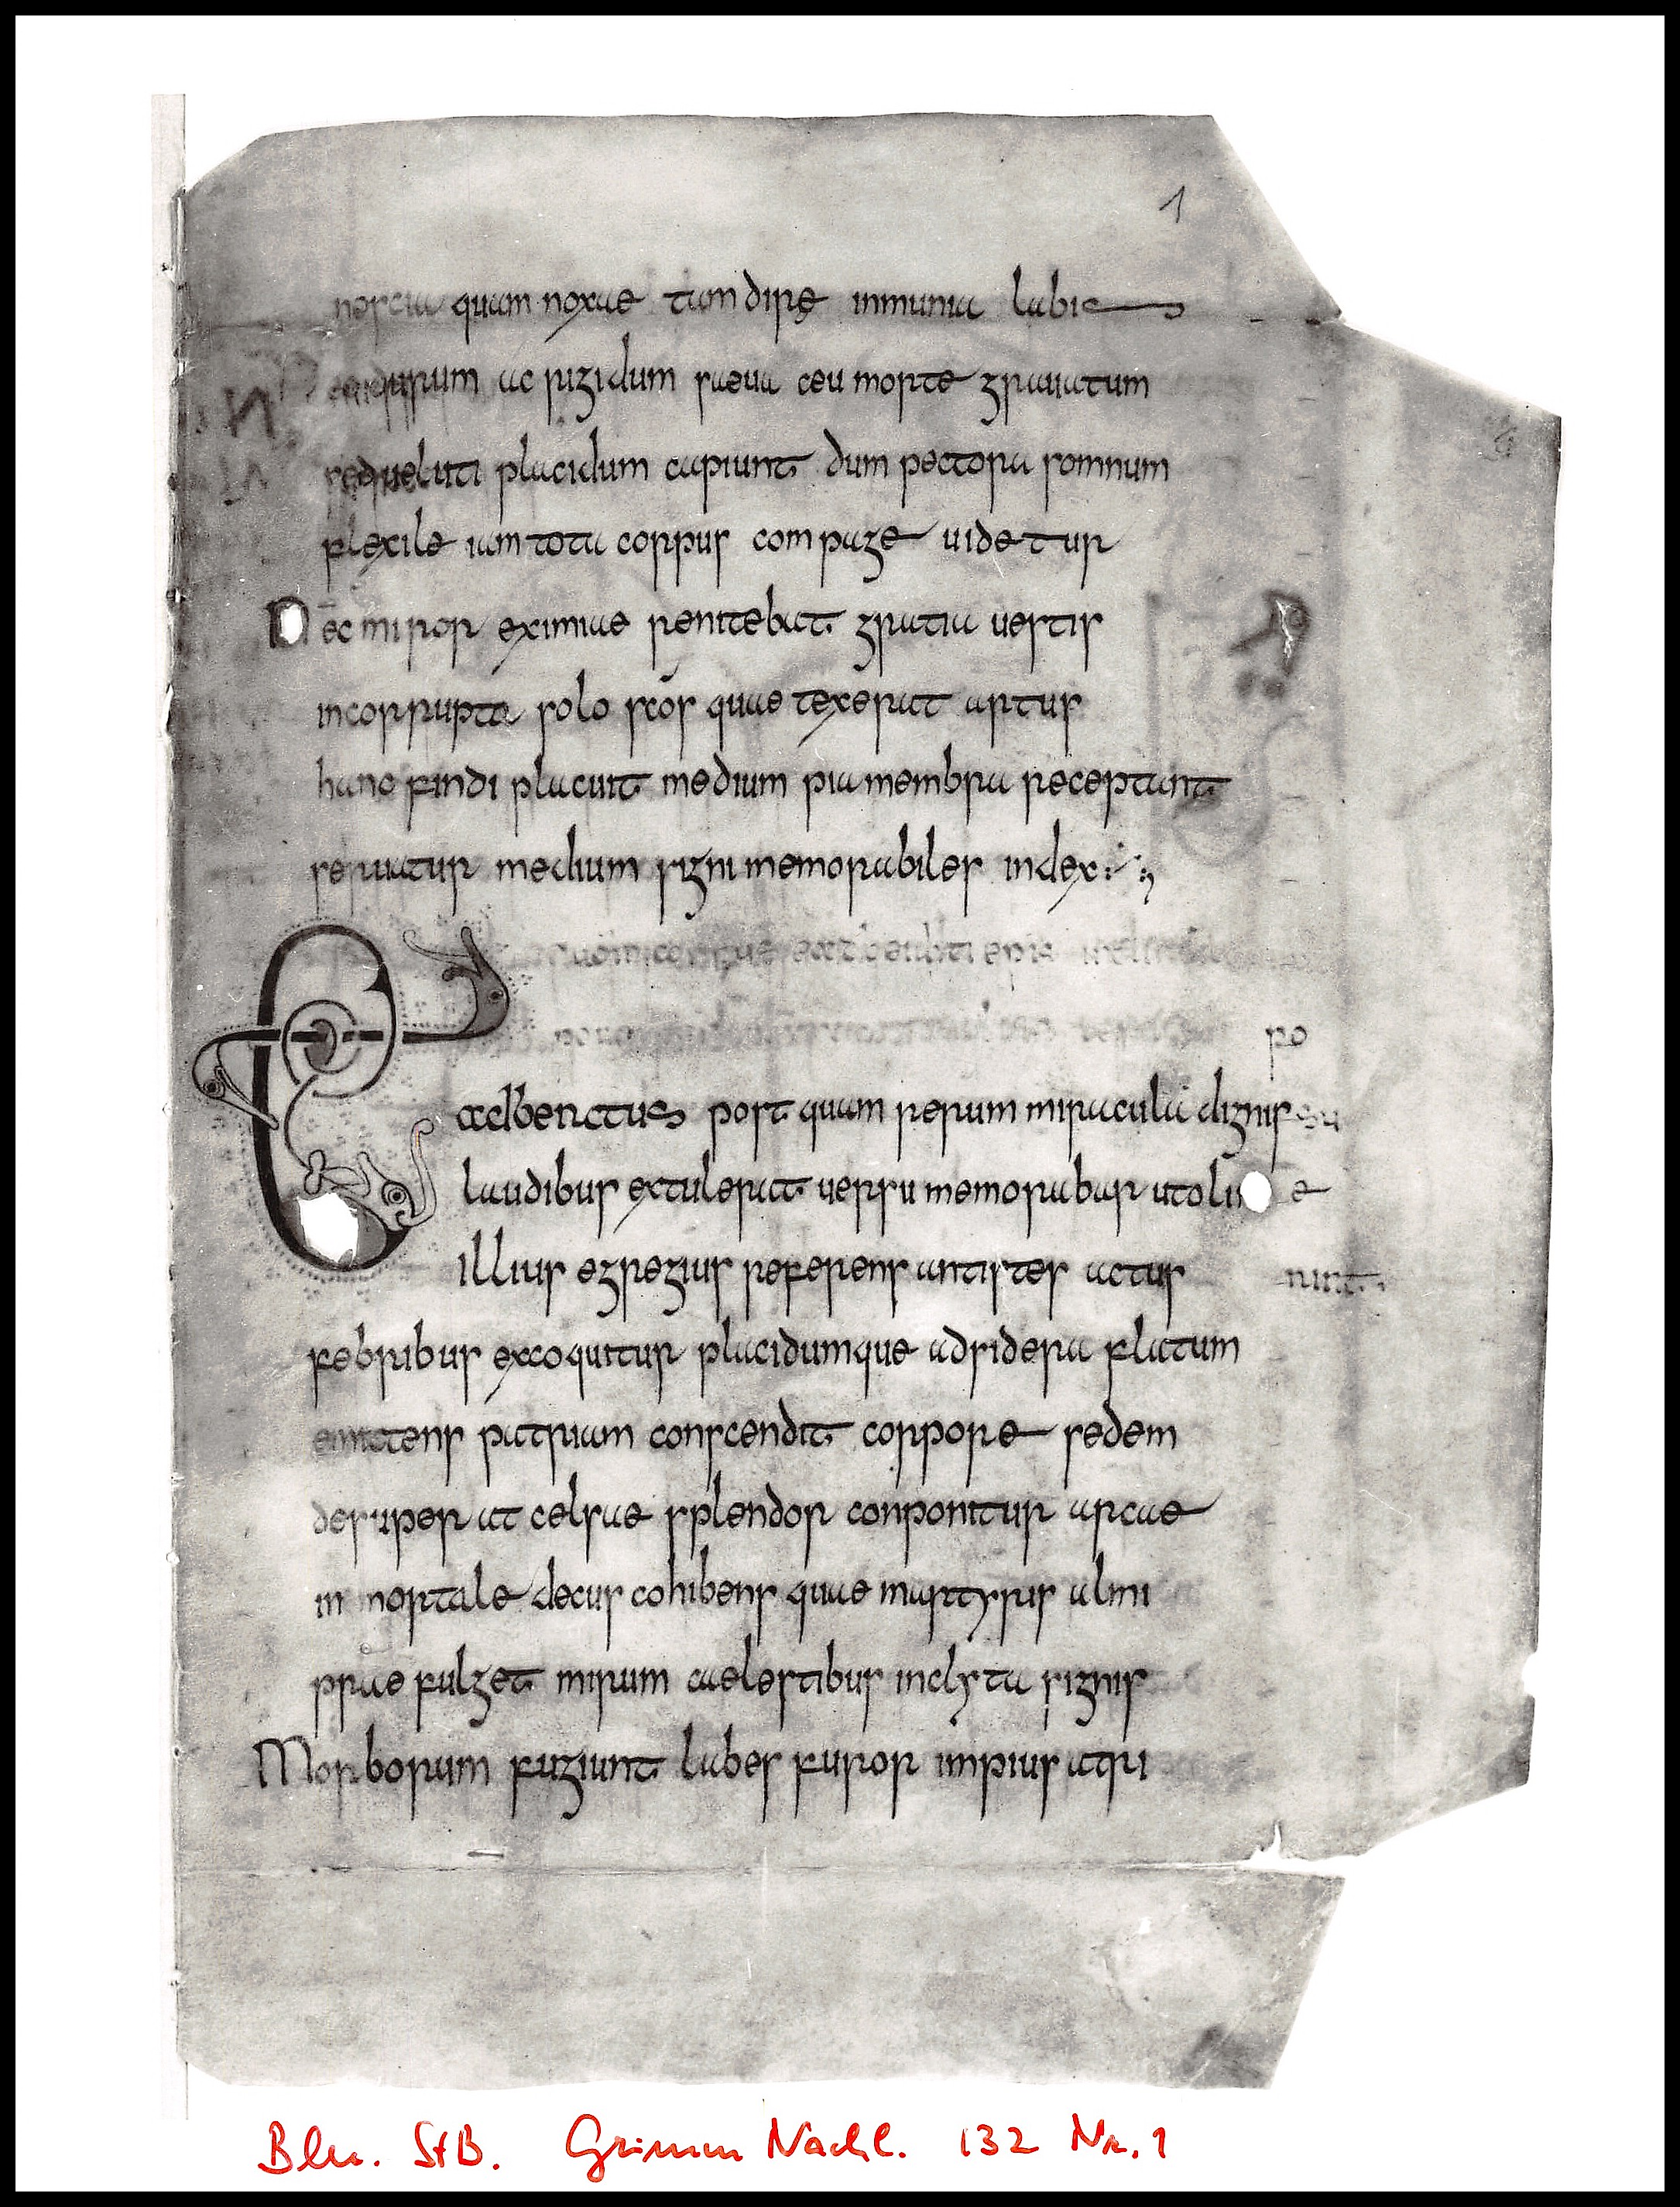 1
nescia quam noxae tam dirę inmunia labis
nec durum ac rigidum saeua ceu morte grauatum
sed ueluti placidum capiunt dum pectora somnum
flexile iam tota corpus compage uidetur
Nec miror eximiae renitebat gratia uestis
incorrupta solo scōs quae texerat artus
hanc findi placuit medium pia membra receptant
seruatur medium signi memorabiles index
po
aedbenctus post quam rerum miracula dignis
laudibus extulerat uersu memorabar ut oli e
illius egregius referens antistes actus
nint
febribus excoquitur placidumque ad sidera flatum
emittens patriam conscendit corpore sedem
desuper at celsae splendor conponitur arcae
in mortale decus cohibens quae martyrus almi
prae fulget mirum caelestibus inclyta signis
Morborum fugiunt labes furor impius atri
Bln. StB. Grimm Nachl. 132 Nr. 1